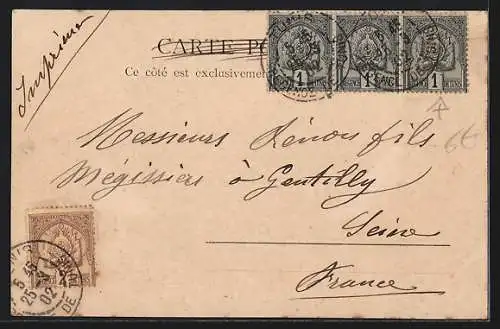 Imprimé
CARTE PO
Ce côté est exclusiveme
1 1 1
Messieurs Lénon fils
Mégissiers à Gentilly
Seine
France